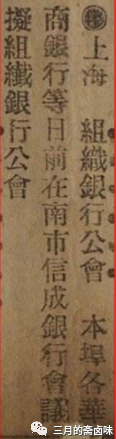 上海　組織銀行公會　本埠各華
商銀行等日前在南市信成銀行會議
擬組織銀行公會
三月的斋卤味